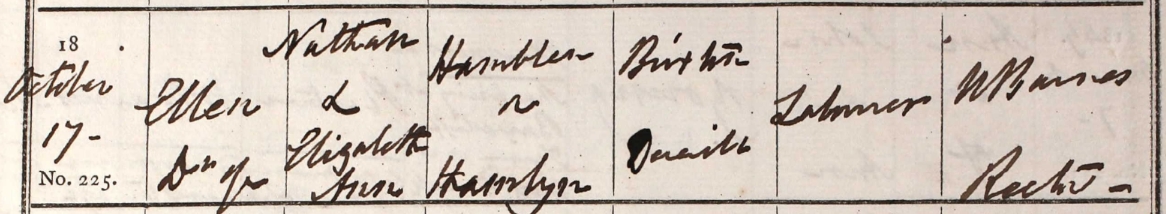 18
October
17-
No. 225.
Ellen
Dau of
Nathan
&
Elizabeth
Ann
Hamblen
or
Hamlyn
Brixton
Deverill
Labourer
W Barnes
Rector -